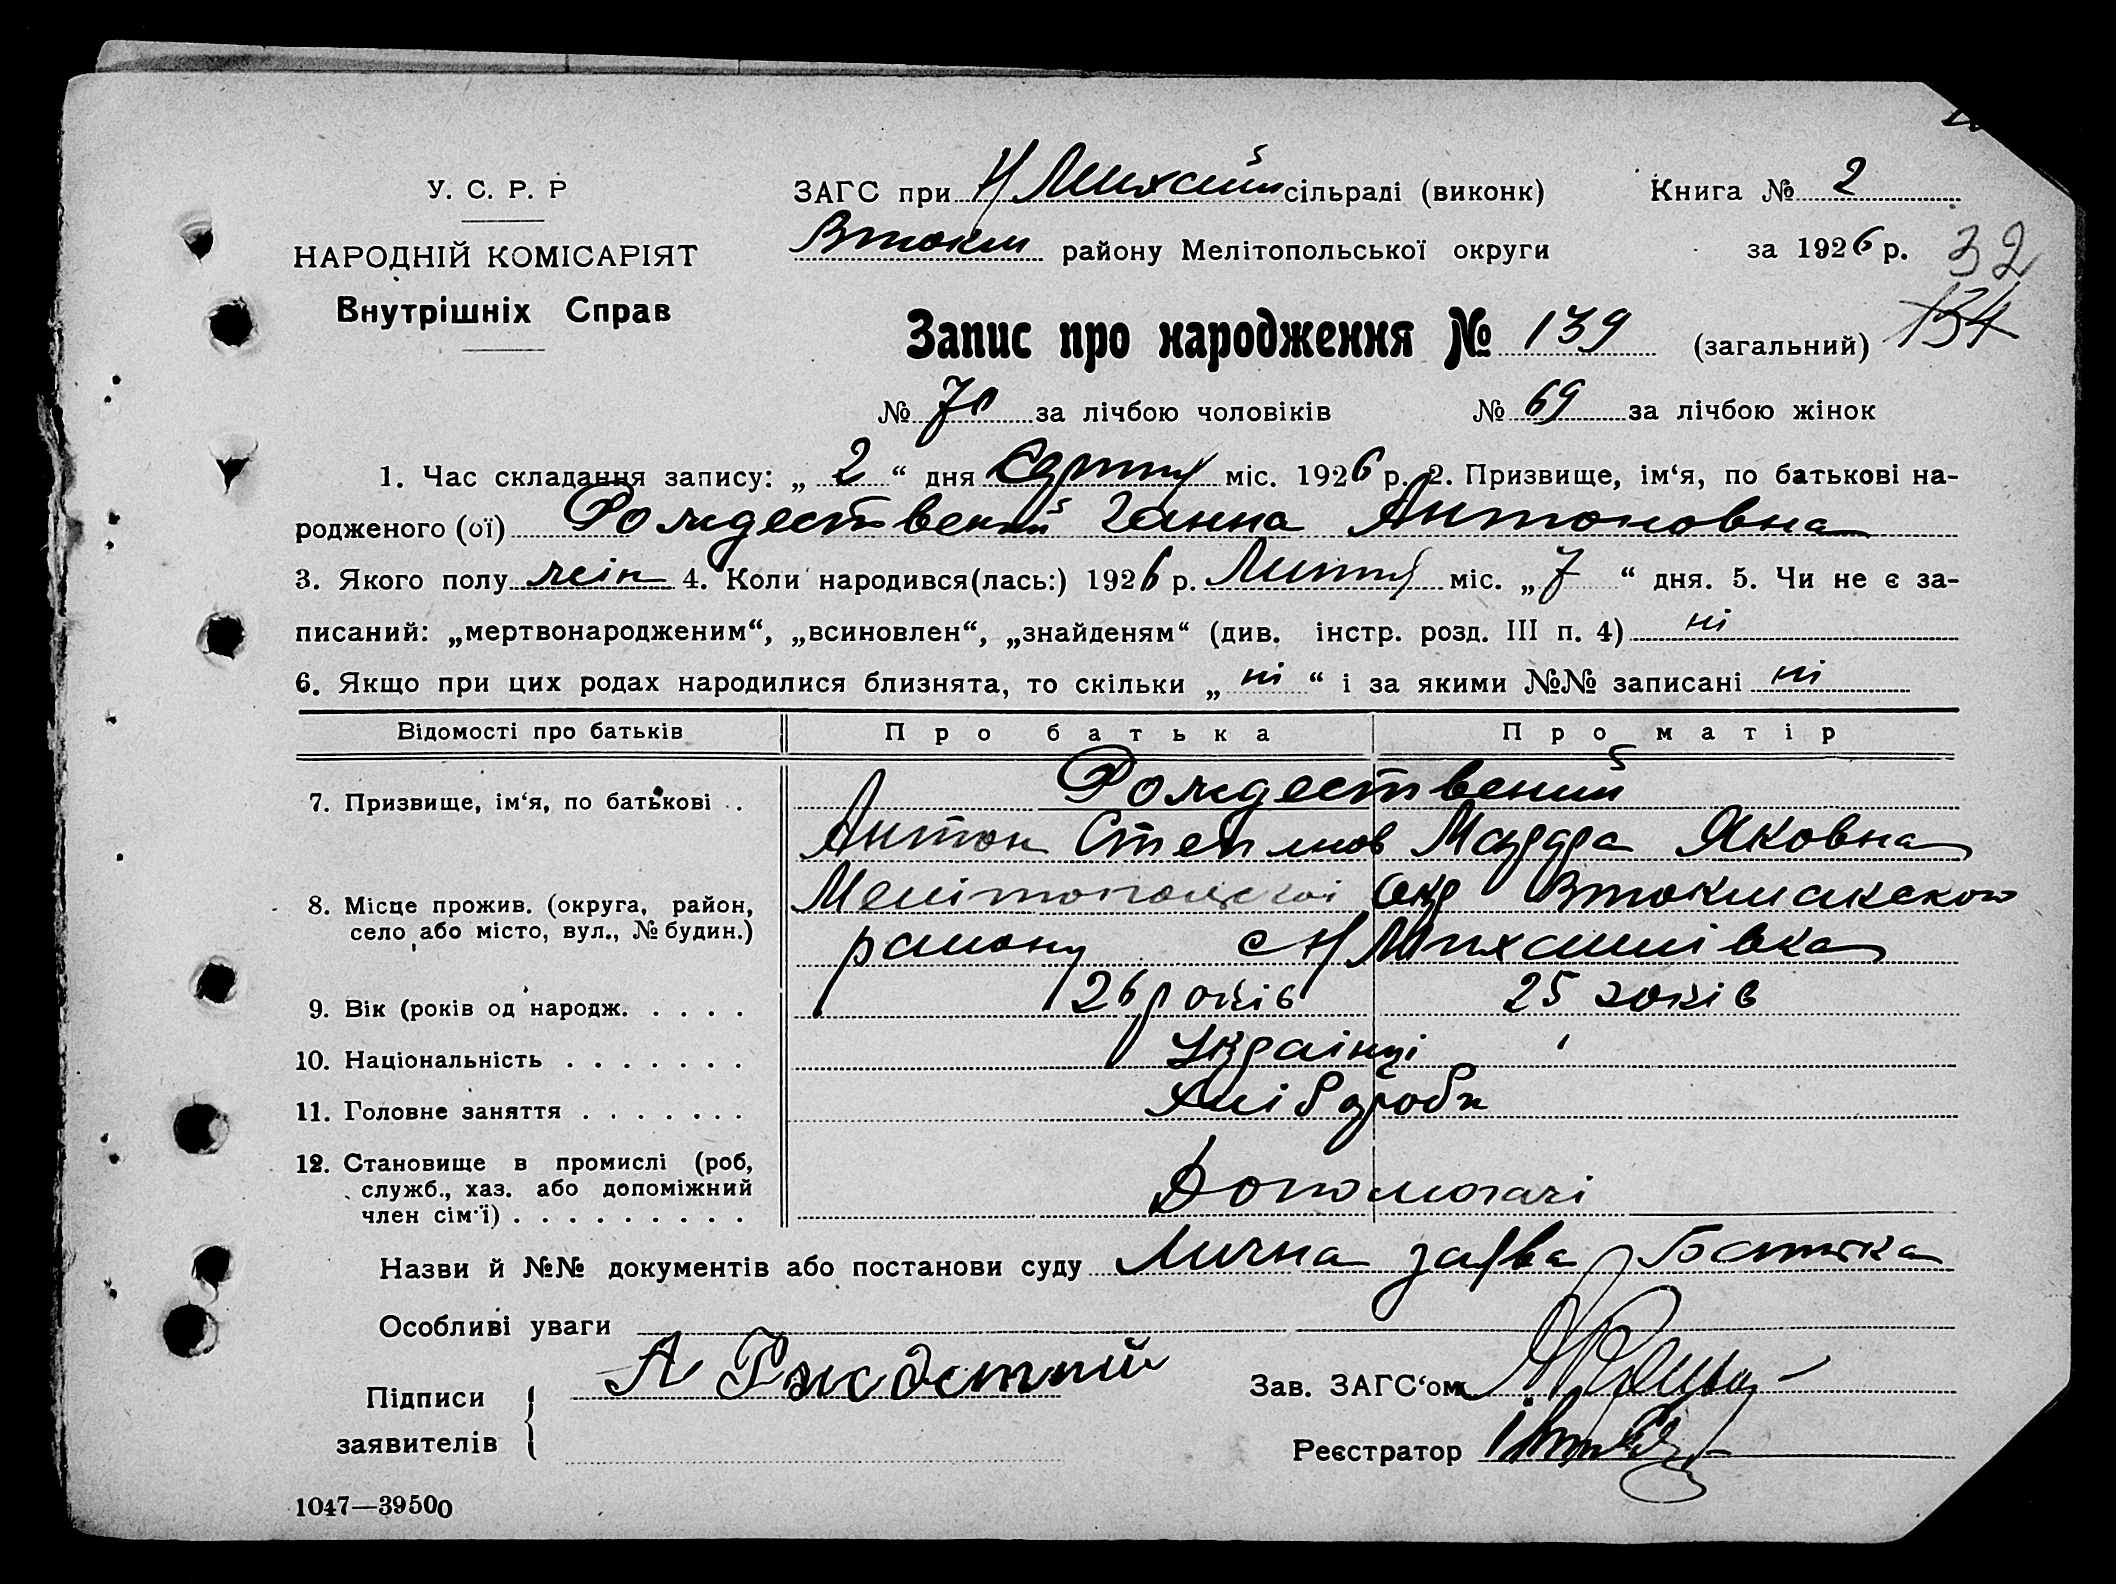 У. С. Р. Р
НАРОДНІЙ КОМІСАРІЯТ
Внутрішніх Справ
ЗАГС при Н Михайл сільраді (виконк)
Втокм району Мелітопольської округи
Книга № 2
за 1926 р.
32
134
Запис про народження № 139 (загальний)
№ 70 за лічбою чоловіків № 69 за лічбою жінок
1. Час складання запису: „ 2 “ дня Серпня міс. 1926 р. 2. Призвище, ім‘я, по батькові на-
родженого (ої) Рождественский Ганна Антоновна
3. Якого полу жін 4. Коли народився(лась:) 1926 р. Липня міс. „ 7 “ дня. 5. Чи не є за-
писаний: „мертвонародженим“, „всиновлен“, „знайденям“ (див. інстр. розд. III п. 4) ні
6. Якщо при цих родах народилися близнята, то скільки „ ні “ і за якими №№ записані ні
Відомості про батьків Про батька Про матір
7. Призвище, ім‘я, по батькові . . Рождественский
Антон Степанов Яковна
8. Місце прожив. (округа, район, Мелітопольскоі Окр Втокмакского
село або місто, вул., № будин.) району с Н Михайлівка
9. Вік (років од народж. . . . . 26 років 25 років
10. Національність . . . . . . . Українці
11. Головне заняття . . . . . . . Хліборобн
12. Становище в промислі (роб,
служб., хаз. або допоміжний
член сім‘ї) . . . . . . . . . Допомогачі
Назви й №№ документів або постанови суду Лична заява Батька
Особливі уваги
Підписи
заявителів
А
Зав. ЗАГС‘ом
Реєстратор
1047—39500